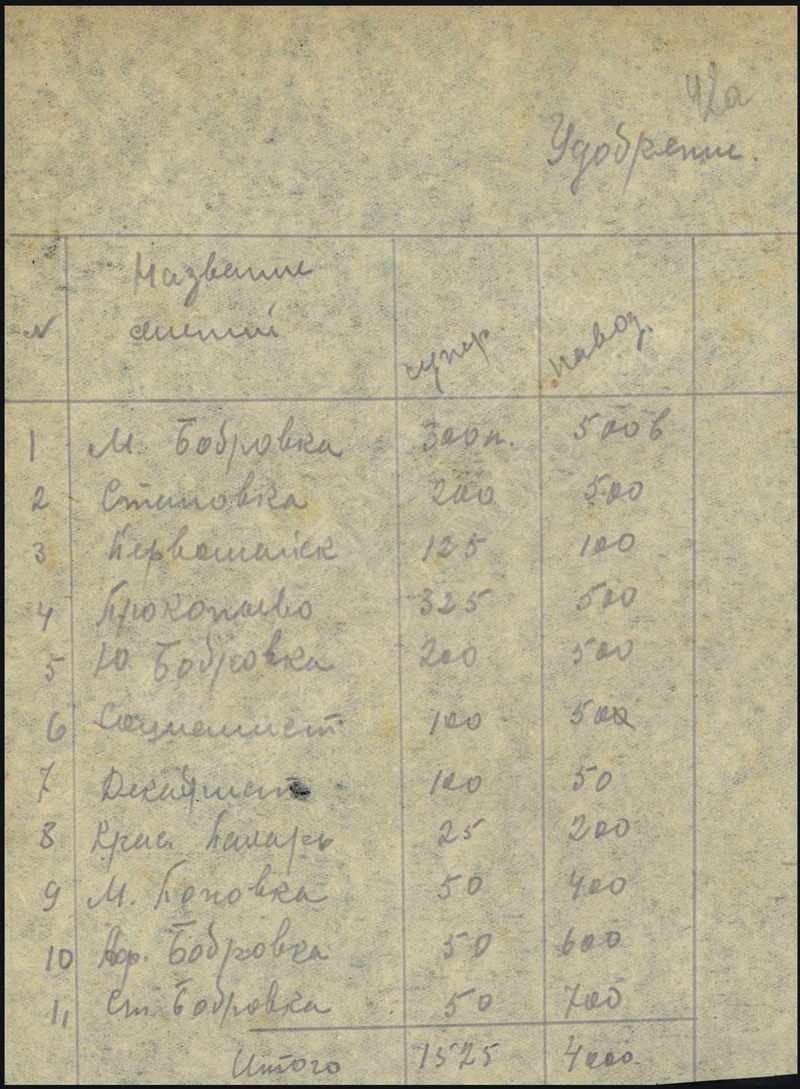 42а
Удобрение.
N Название супер. навоз.
1 М. Бобровка 300п. 500в
2 Степновка 200 500
3 Первомайск 125 100
4 Прокопьево 325 500
5 Ю. Бобровка 200 500
6 Социалист 100 500
7 Декабрист 100 50
8 Крас. Пахарь 25 200
9 М. Поповка 50 400
10 Бобровка 50 600
11 Ст. Бобровка 50 700
Итого 1525 4000